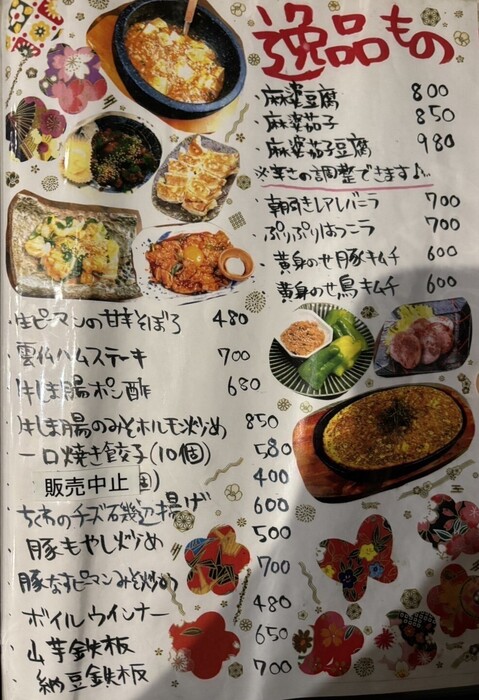 逸品もの
・麻婆豆腐 800
・麻婆茄子 850
・麻婆茄子豆腐 980
※辛さの調整できます♪
・朝引きレアレバニラ 700
・ぷりぷりはつニラ 700
・黄身のせ豚キムチ 600
・黄身のせ鳥キムチ 600
・生ピーマンの甘辛そぼろ 480
・雲仙ハムステーキ 700
・しま腸ポン酢 680
・しま腸のみそホルモン炒め 850
・一口焼き餃子(10個) 580
販売中止 個) 400
・ちくわのチーズ磯辺揚げ 600
・豚もやし炒め 500
・豚なすピーマンみそ炒め 700
・ボイルウインナー 480
・山芋鉄板 650
・納豆鉄板 700